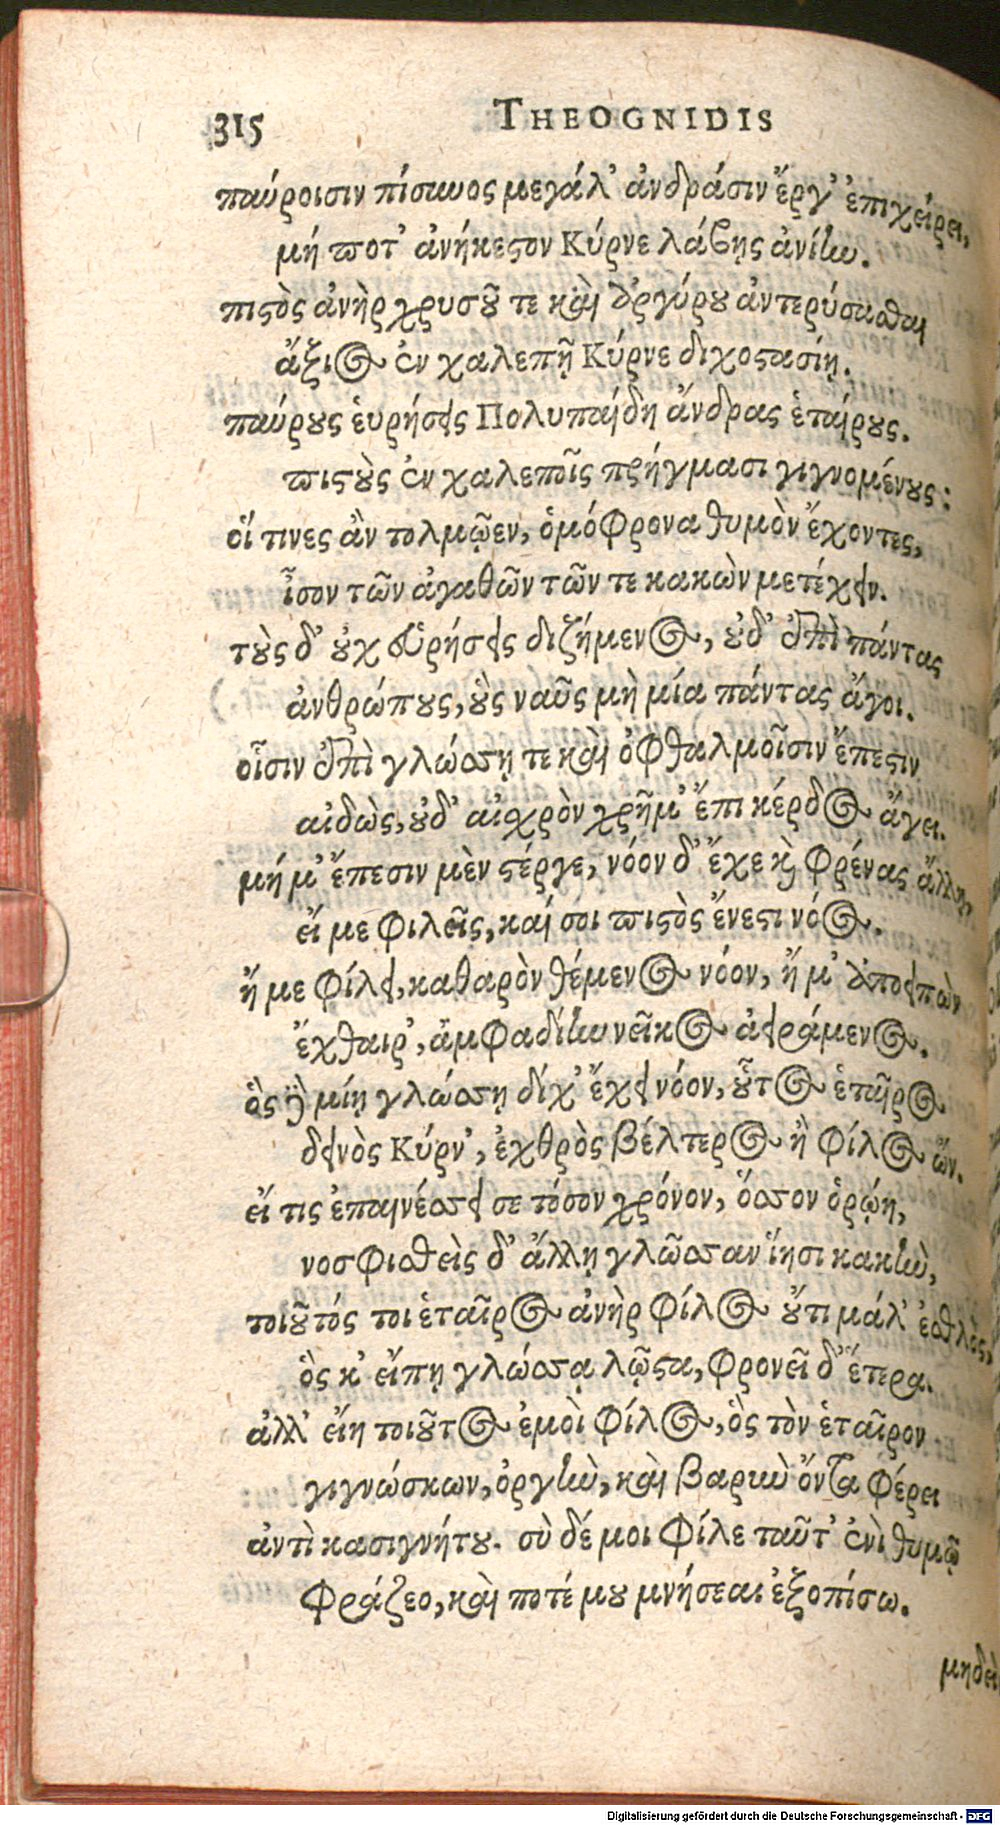 315 THEOGNIDIS
παύροισιν πίσυνος μεγάλ' ἀνδράσιν ἔργ' ἐπιχείρει,
μή ποτ' ἀνήκεστον Κύρνε λάβῃς ἀνίην.
πιστὸς ἀνὴρ χρυσοῦ τε καὶ ἀργύρου ἀντερύσασθαι
ἄξιος ἐν χαλεπῇ Κύρνε διχοστασίῃ.
παύρους ἑυρήσεις Πολυπαίδη ἄνδρας ἑταίρους.
πιστοὺς ἐν χαλεποῖς πρήγμασι γιγνομένους:
οἵ τινες ἂν τολμῷεν, ὁμόφρονα θυμὸν ἔχοντες,
ἶσον τῶν ἀγαθῶν τῶν τε κακὼν μετέχειν.
τοὺς δ' οὐχ εὑρήσεις διζήμενος, οὐδ' ἐπὶ πάντας
ἀνθρώπους, οὓς ναῦς μὴ μία πάντας ἄγοι.
οἷσιν ἐπὶ γλώσσῃ τε καὶ ὀφθαλμοῖσιν ἔπεστιν
αἰδὼς, οὐδ' αἰσχρὸν χρῆμ' ἔπι κέρδος ἄγει.
μή μ' ἔπεσιν μὲν στέργε, νόον δ' ἔχε καὶ φρένας ἄλλῃ,
εἴ με φιλεῖς, καί σοι πιστὸς ἔνεστι νόος.
ἤ με φίλει, καθαρὸν θέμενος νόον, ἤ μ' ἀποειπὼν
ἔχθαιρ', ἀμφαδίην νεῖκος ἀειράμενος.
ὃς δὲ μίῃ γλώσσῃ δίχ' ἔχει νόον, οὗτος ἑταῖρος
δεινὸς Κύρν', ἐχθρὸς βέλτερος ἢ φίλος ὤν.
εἴ τις ἐπαινέσσει σε τόσον χρόνον, ὅσσον ὁρῴη,
νοσφισθεὶς δ' ἄλλῃ γλῶσσαν ἵησι κακὴν,
τοιοῦτός τοι ἑταῖρος ἀνὴρ φίλος οὔτι μάλ' ἐσθλὸς,
ὃς κ' εἴπῃ γλώσσᾳ λῷστα, φρονεῖ δ' ἕτερα.
ἀλλ' εἴη τοιοῦτος ἐμοὶ φίλος, ὃς τὸν ἑταῖρον
γιγνώσκων, ὀργὴν, καὶ βαρὺν ὄντα φέρει
ἀντὶ κασιγνήτου. σὺ δέ μοι φίλε ταῦτ' ἐνὶ θυμῷ
φράζεο, καὶ ποτέ μου μνήσεαι ἐξοπίσω.
μηδεὶ
Digitalisierung gefördert durch die Deutsche Forschungsgemeinschaft - DFG